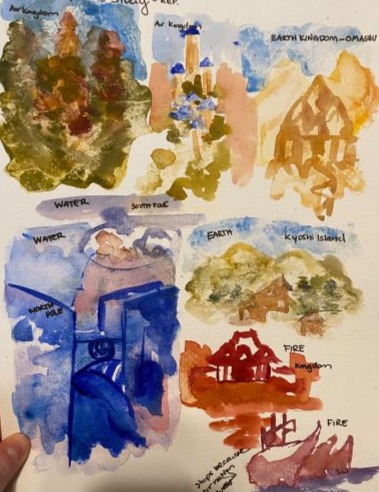 Study - REP.
Air Kingdom
Air Kingdom
EARTH KINGDOM - OMASHU
WATER
SOUTH POLE
WATER
NORTH POLE
EARTH
Kyoshi Island
FIRE
Kingdom
FIRE
ships because